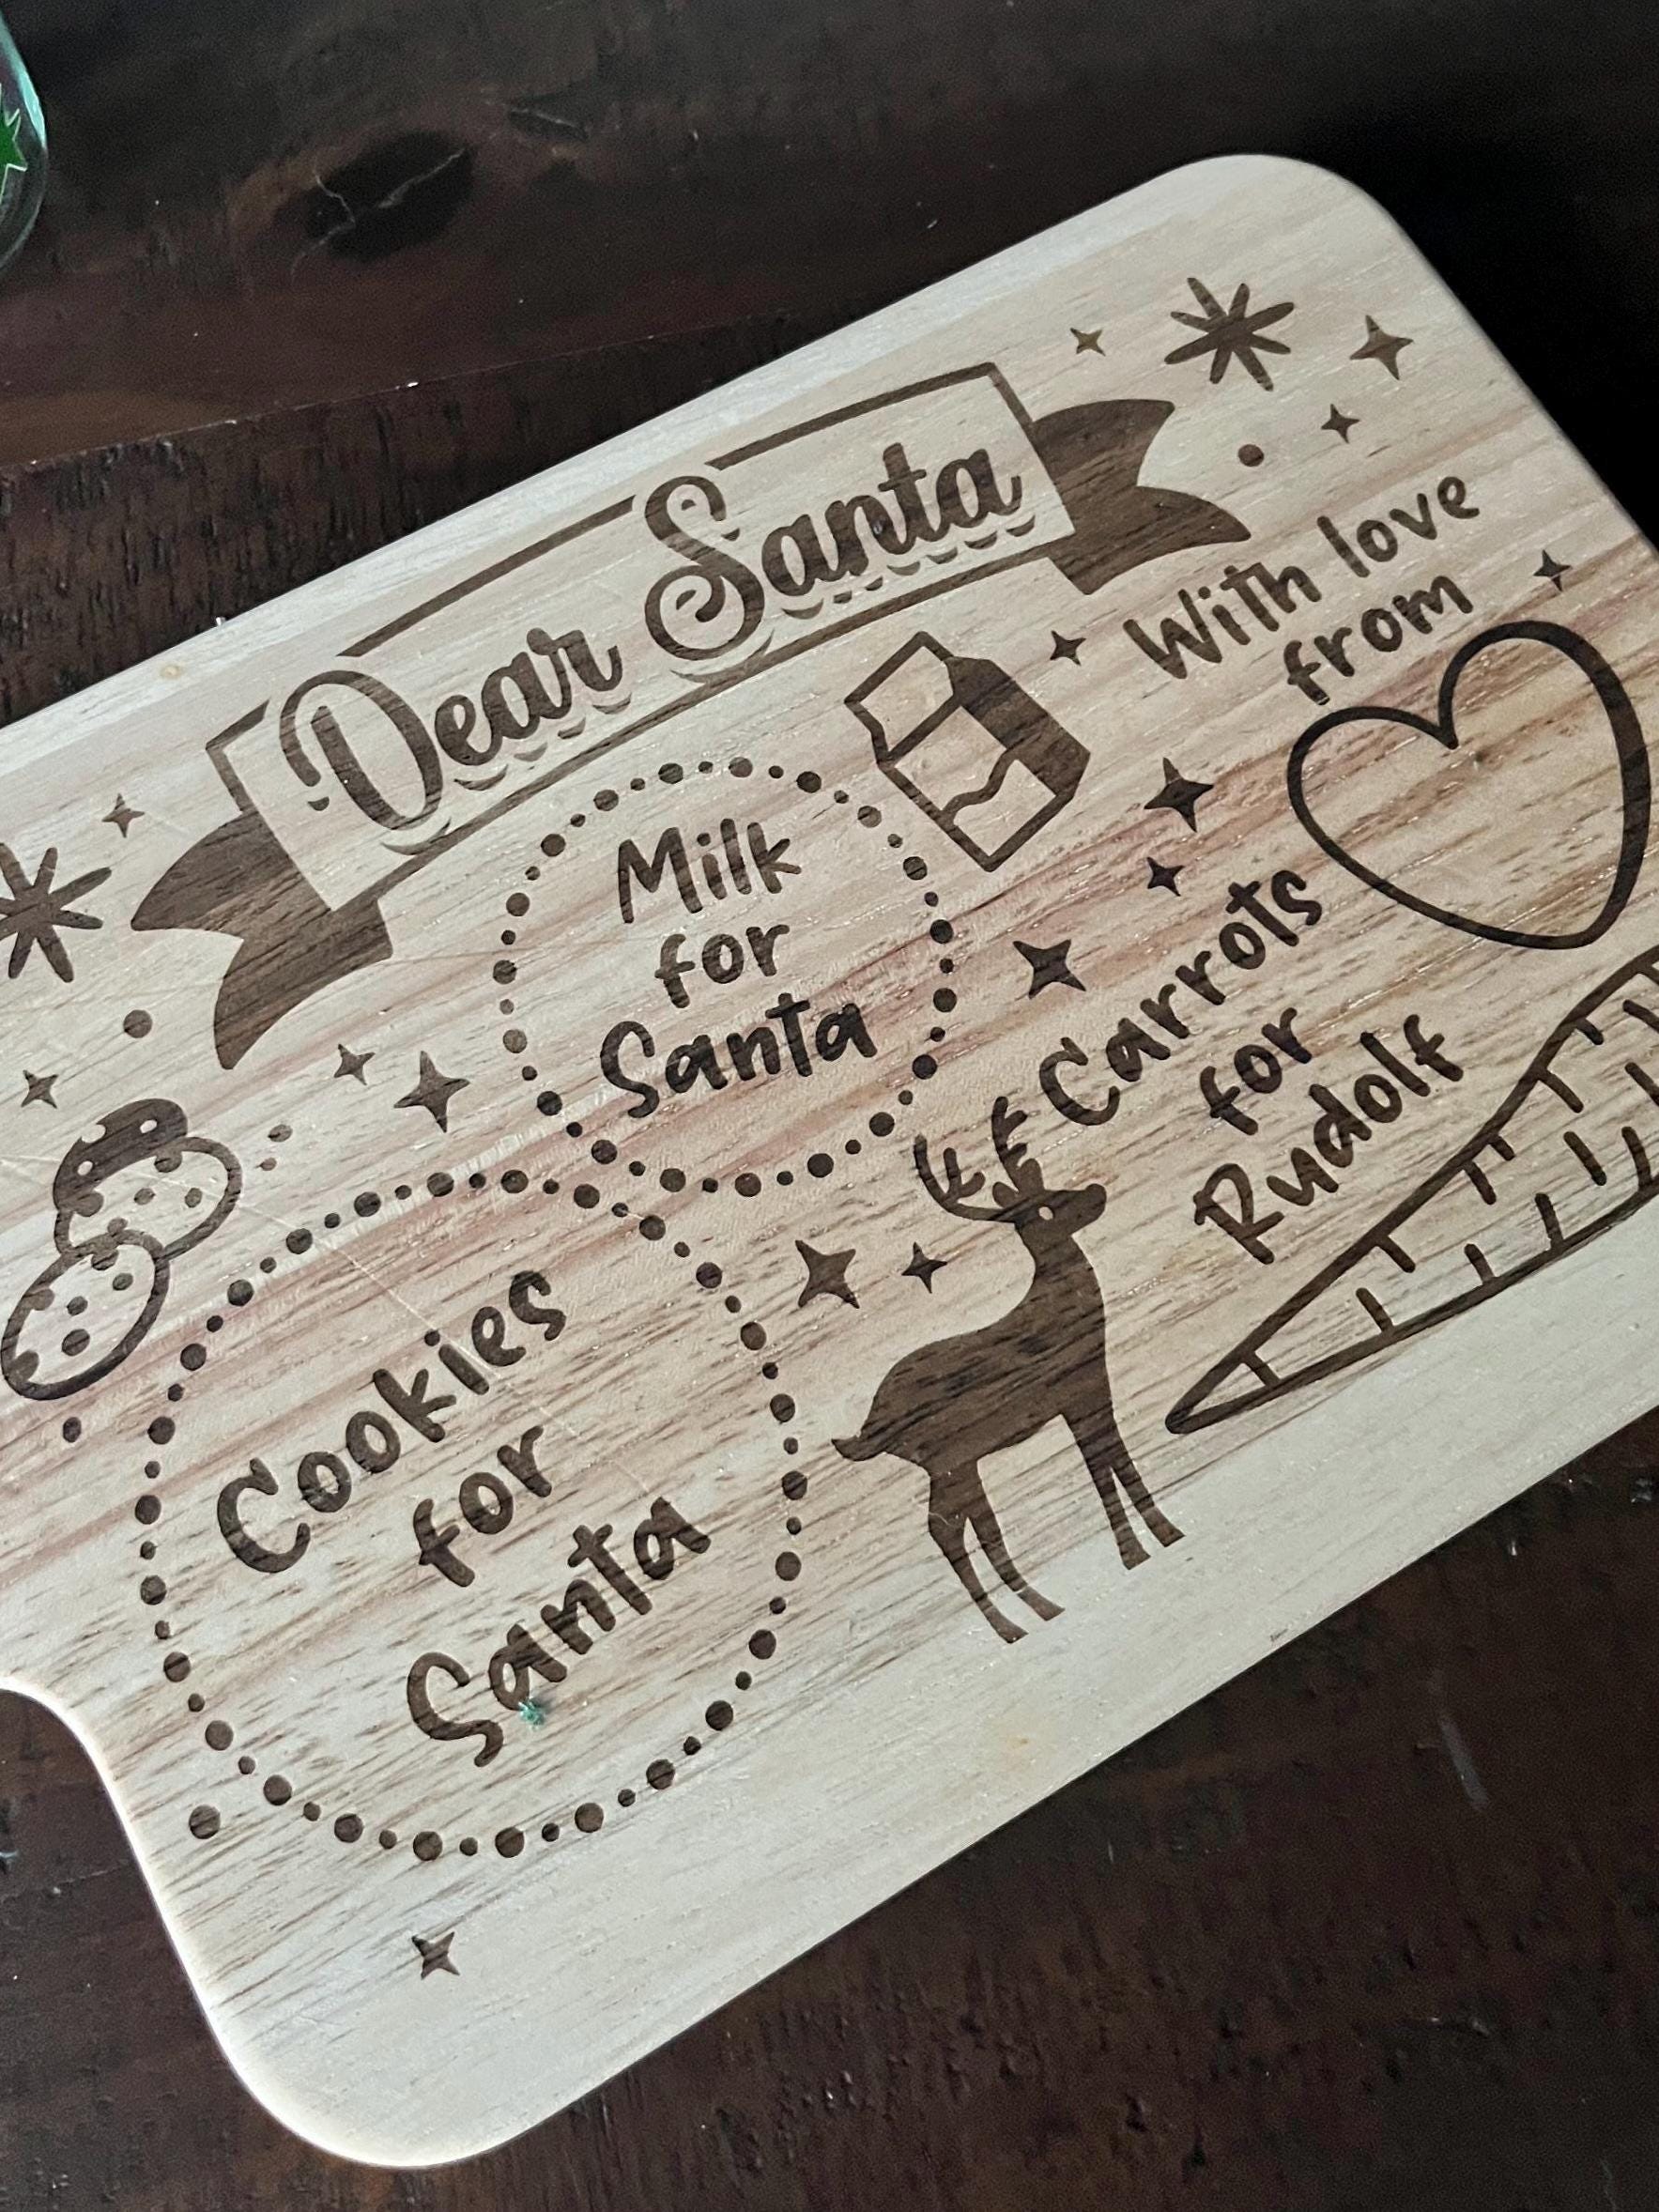 Dear Santa
With love
from
Milk
for
Santa
Carrots
for
Rudolf
Cookies
for
Santa